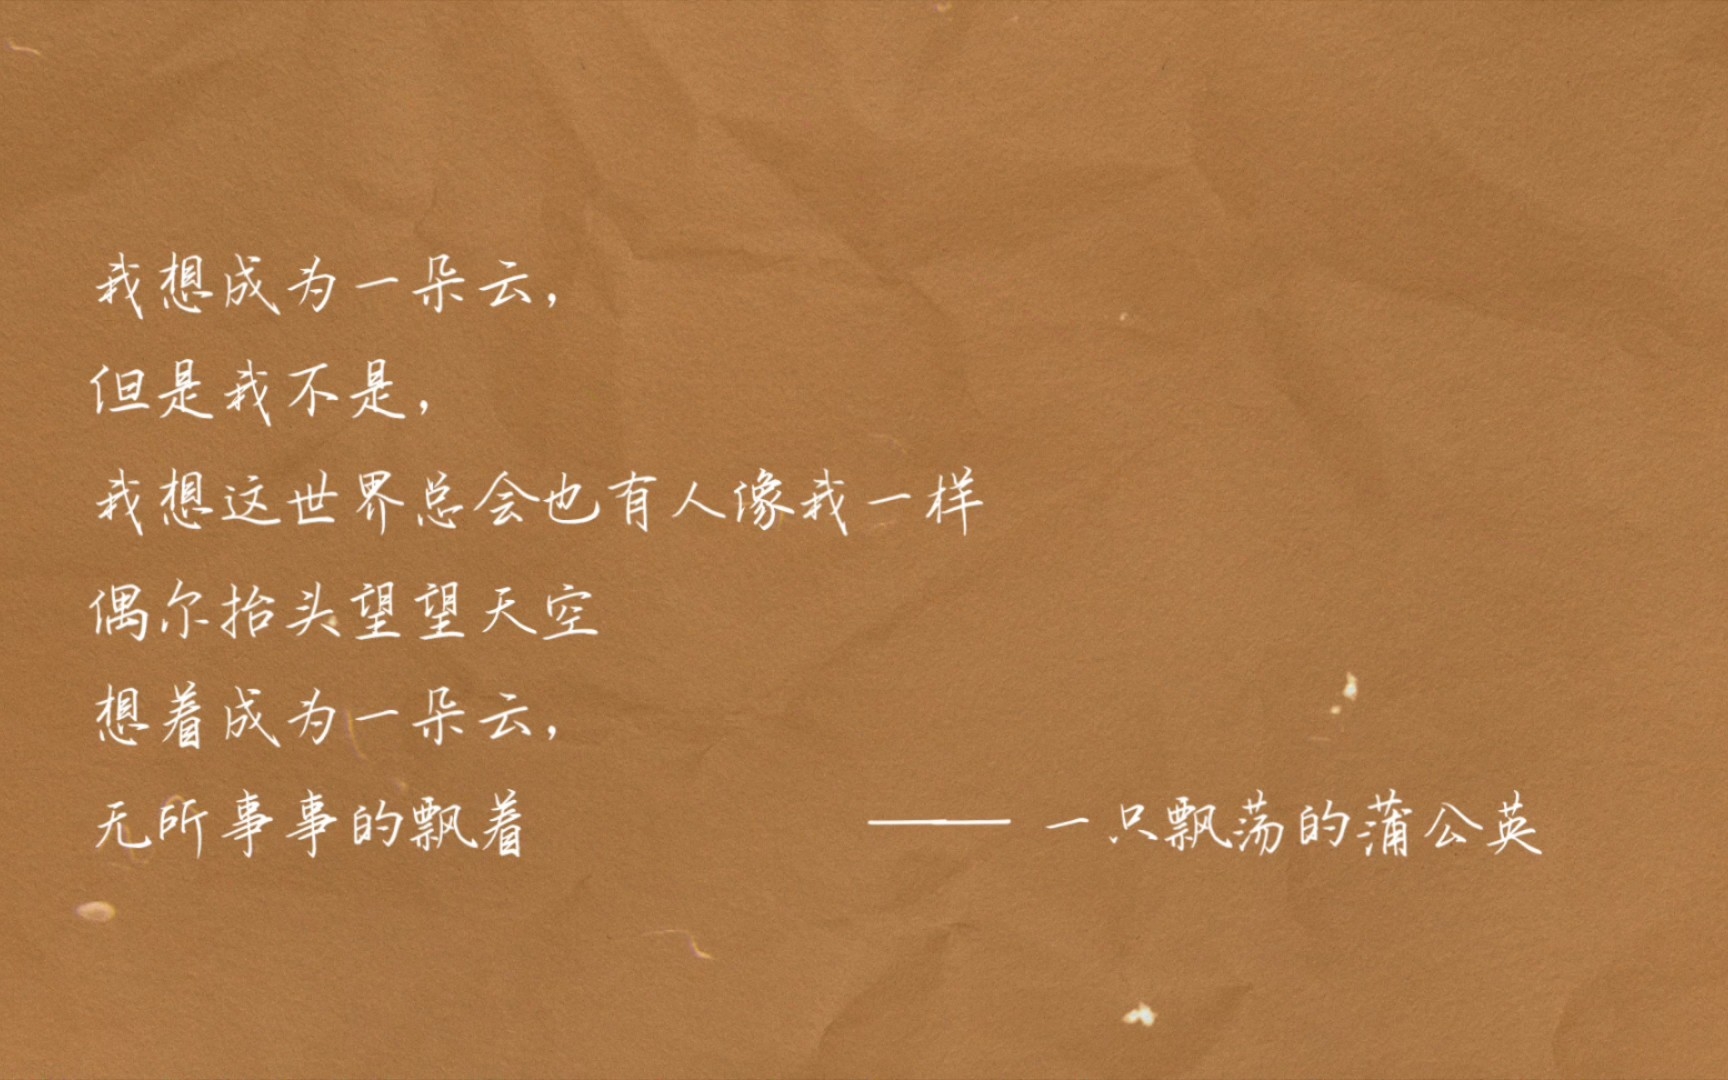 我想成为一朵云，
但是我不是，
我想这世界总会也有人像我一样
偶尔抬头望望天空
想着成为一朵云，
无所事事的飘着 —— 一只飘荡的蒲公英